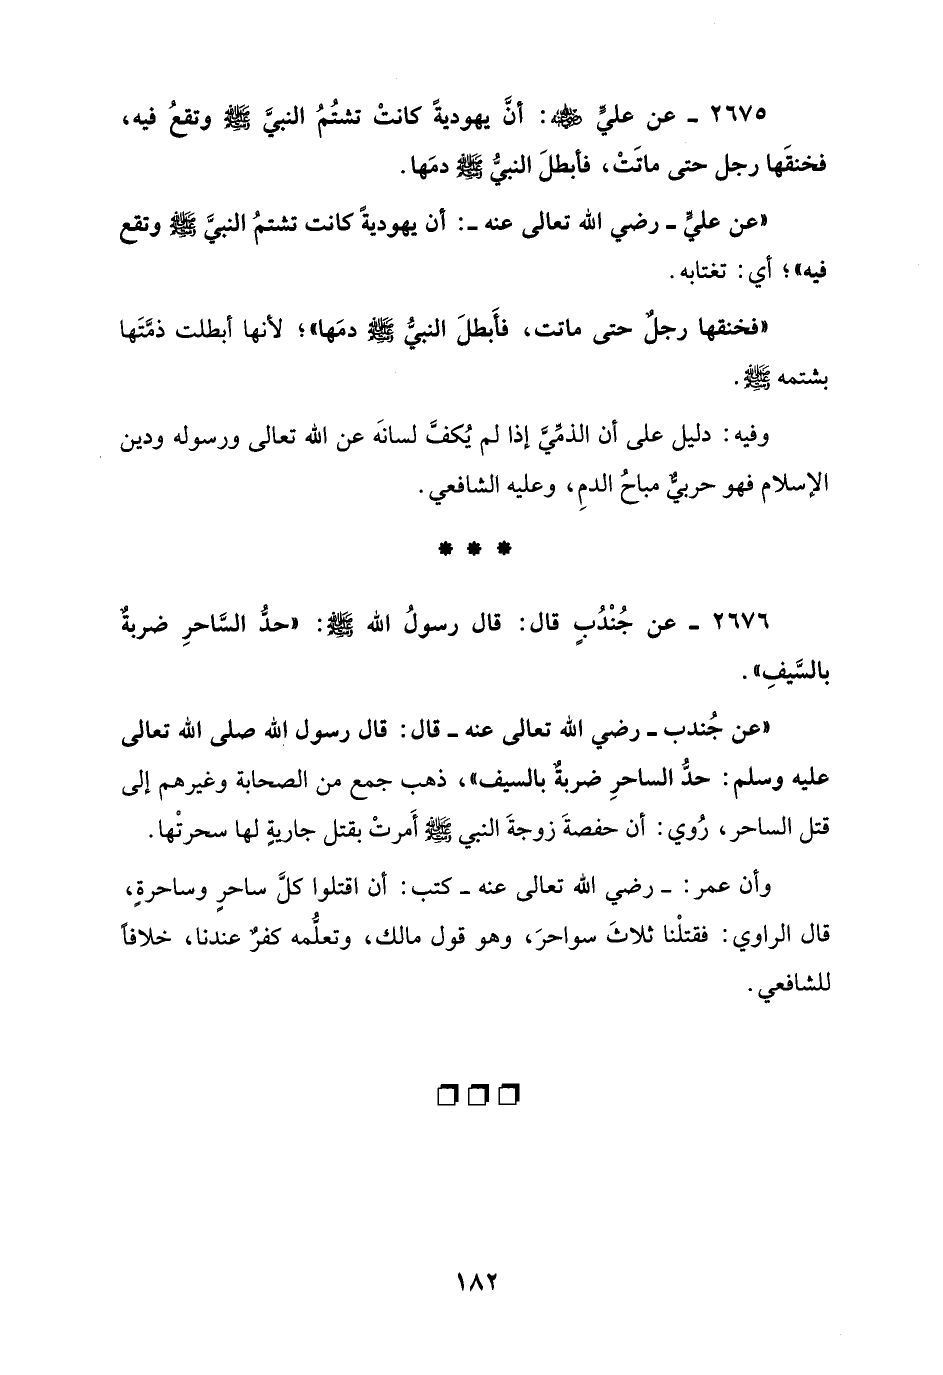 ٢٦٧٥ ـ عن عليٍّ ﵁: أنَّ يهوديةً كانتْ تشتُمُ النبيَّ ﷺ وتقعُ فيه،
فخنقَها رجل حتى ماتَتْ، فأبطلَ النبيُّ ﷺ دمَها.
«عن عليٍّ ـ رضي الله تعالى عنه ـ: أن يهوديةً كانت تشتمُ النبيَّ ﷺ وتقع
فيه»؛ أي: تغتابه.
«فخنقها رجلٌ حتى ماتت، فأَبطلَ النبيُّ ﷺ دمَها»؛ لأنها أبطلت ذمَّتَها
بشتمه ﷺ.
وفيه: دليل على أن الذمِّيَّ إذا لم يُكفَّ لسانَه عن الله تعالى ورسوله ودين
الإسلام فهو حربيٌّ مباحُ الدمِ، وعليه الشافعي.
* * *
٢٦٧٦ ـ عن جُنْدُبٍ قال: قال رسولُ الله ﷺ: «حدُّ السَّاحرِ ضربةٌ
بالسَّيفِ».
«عن جُندب ـ رضي الله تعالى عنه ـ قال: قال رسول الله صلى الله تعالى
عليه وسلم: حدُّ الساحرِ ضربةٌ بالسيف»، ذهب جمع من الصحابة وغيرهم إلى
قتل الساحر، رُوي: أن حفصةَ زوجةَ النبي ﷺ أَمرتْ بقتل جاريةٍ لها سحرتْها.
وأن عمر: ـ رضي الله تعالى عنه ـ كتب: أن اقتلوا كلَّ ساحرٍ وساحرةٍ،
قال الراوي: فقتلْنا ثلاثَ سواحرَ، وهو قول مالك، وتعلُّمه كفرٌ عندنا، خلافاً
للشافعي.
❒ ❒ ❒
١٨٢